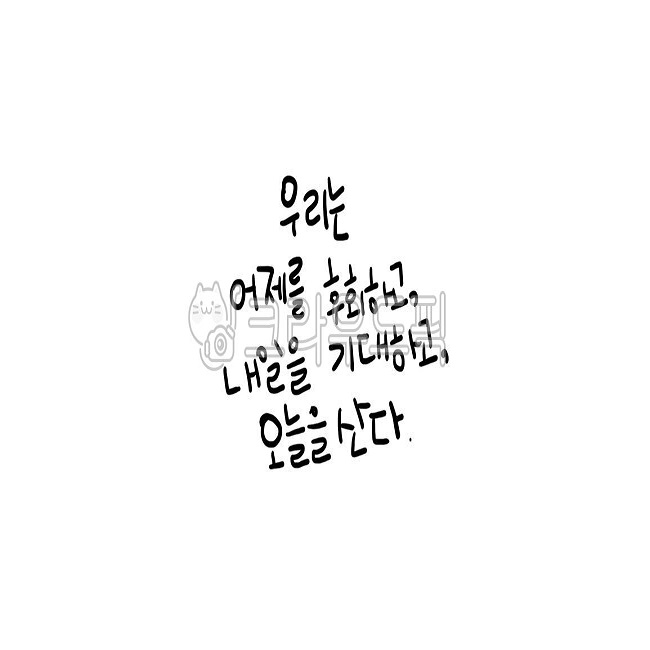 우리는
어제를 후회하고,
내일을 기대하고,
오늘을 산다.
크라우드픽